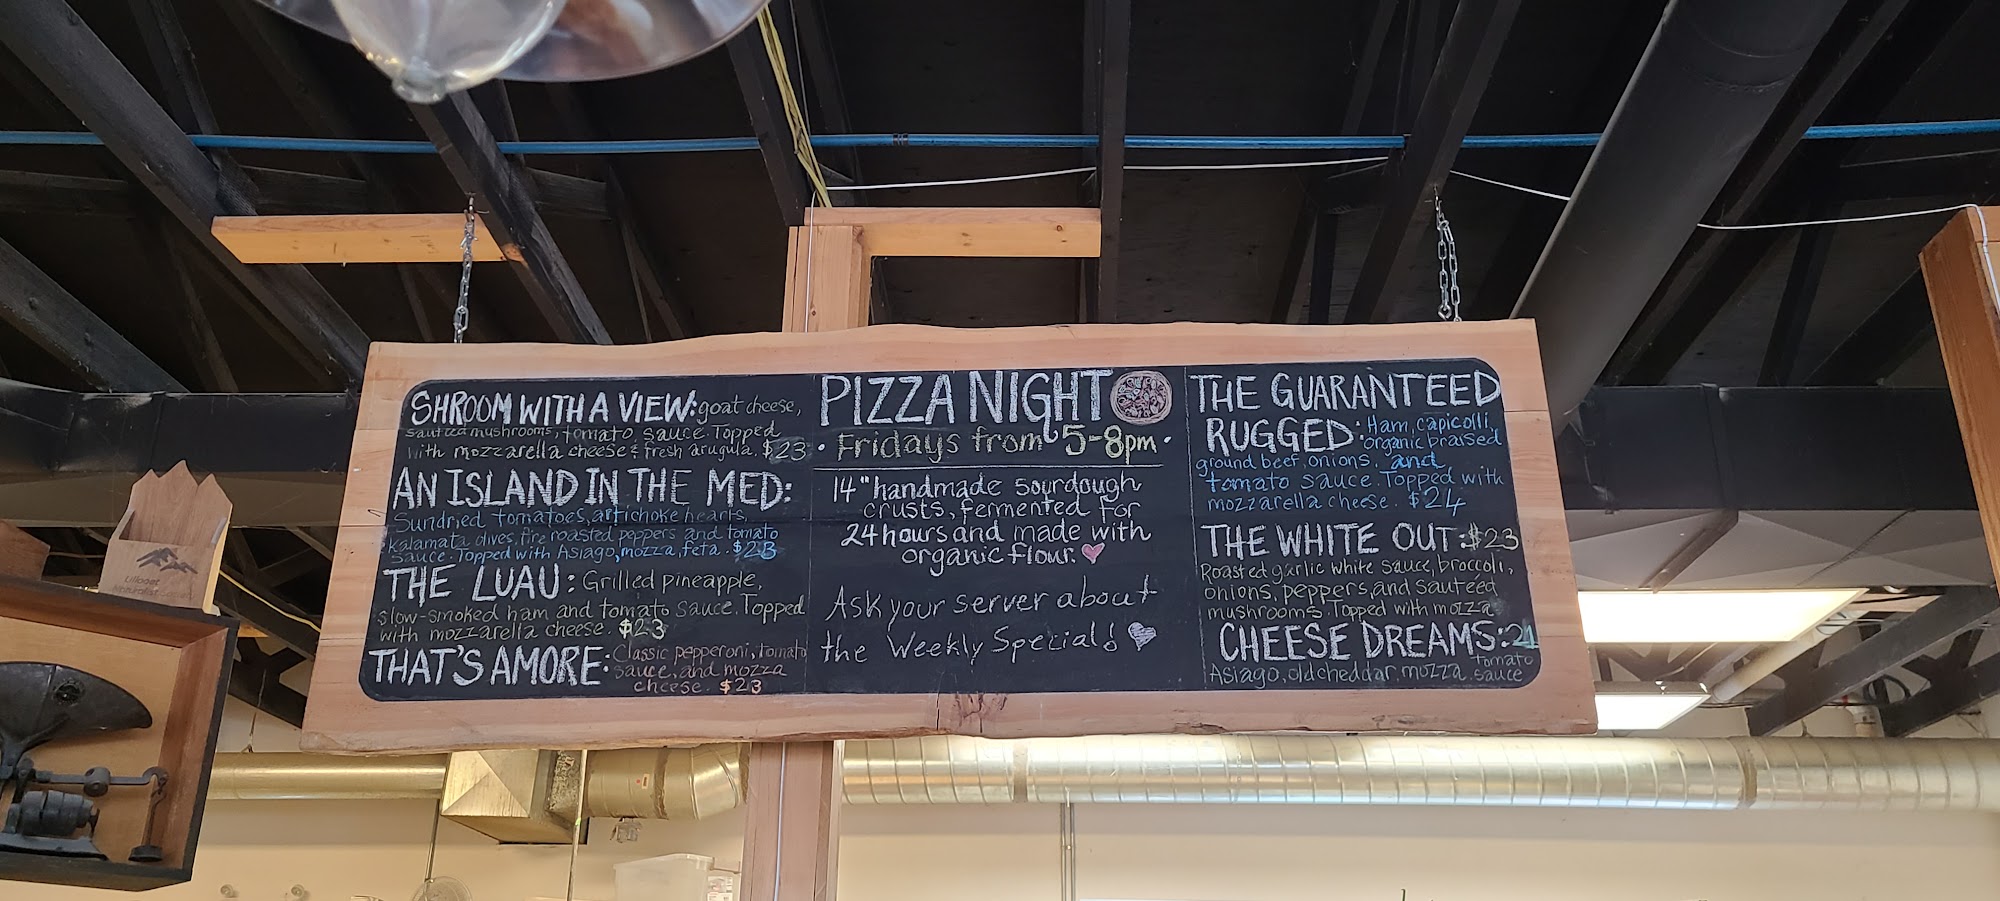 SHROOM WITH A VIEW: goat cheese,
sautéed mushrooms, tomato sauce. Topped
with mozzarella cheese & fresh arugula. $23
AN ISLAND IN THE MED:
Sundried tomatoes, artichoke hearts,
Kalamata olives, fire roasted peppers and tomato
sauce. Topped with Asiago, mozza, feta. $23
THE LUAU: Grilled pineapple,
slow-smoked ham and tomato sauce. Topped
with mozzarella cheese. $23
THAT'S AMORE: Classic pepperoni, tomato
sauce, and mozza
cheese. $23
PIZZA NIGHT
• Fridays from 5-8pm •
14" handmade sourdough
crusts, fermented for
24 hours and made with
organic flour.
Ask your server about
the Weekly Special!
THE GUARANTEED
RUGGED: Ham, capicolli,
organic braised
ground beef, onions, and
tomato sauce. Topped with
mozzarella cheese. $24
THE WHITE OUT: $23
Roasted garlic white sauce, broccoli,
onions, peppers, and sautéed
mushrooms. Topped with mozza
CHEESE DREAMS: 21
Asiago, old cheddar, mozza, tomato
sauce